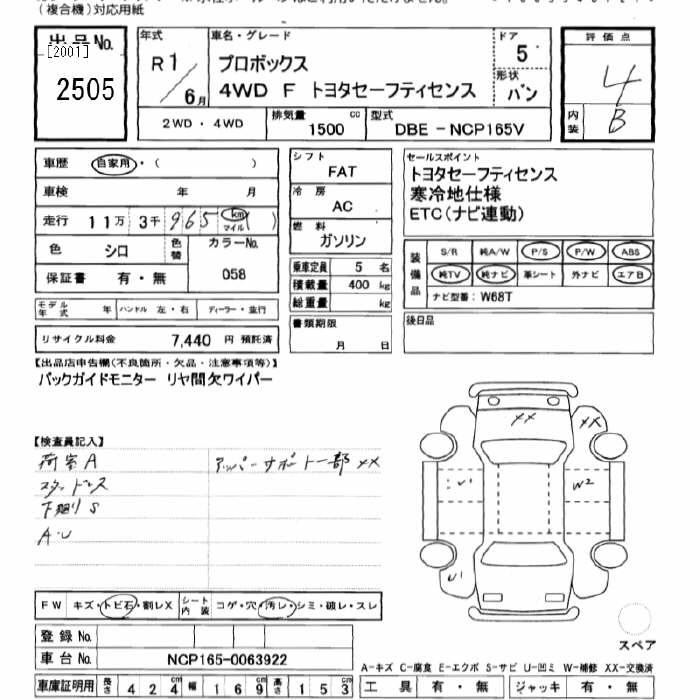 (複合機)対応用紙
出品No.
[2001]
2505
年式
R1/6月
車名・グレード
プロボックス
4WD F トヨタセーフティセンス
ドア
5
形状
バン
評価点
4
内装
B
2WD・4WD
排気量
1500 cc
型式
DBE-NCP165V
車歴 自家用・( )
車検 年 月
走行 11万 3千 965 km マイル ( )
色 シロ 色替 カラーNo. 058
保証書 有・無
モデル年式 年 ハンドル 左・右 ディーラー・並行
リサイクル料金 7,440 円 預託済
シフト
FAT
冷房
AC
燃料
ガソリン
乗車定員 5 名
積載量 400 kg
総重量 kg
書類期限
月 日
セールスポイント
トヨタセーフティセンス
寒冷地仕様
ETC(ナビ連動)
装備品
S/R 純A/W P/S P/W ABS
純TV 純ナビ 革シート 外ナビ エアB
ナビ型番: W68T
後日品
【出品店申告欄(不良箇所・欠品・注意事項等)】
バックガイドモニター リヤ間欠ワイパー
【検査員記入】
荷室A
アッパーサポート一部XX
スタッドレス
下廻りS
A・U
XX
XX
U1
W2
U1
スペア
FW キズ・トビ石・割レX シート内装 コゲ・穴・汚レ・シミ・破レ・スレ
登録No.
車台No. NCP165-0063922
A-キズ C-腐食 E-エクボ S-サビ U-凹ミ W-補修 XX-交換済
車庫証明用 長さ 424cm 幅 169cm 高さ 153cm
工具 有・無 ジャッキ 有・無